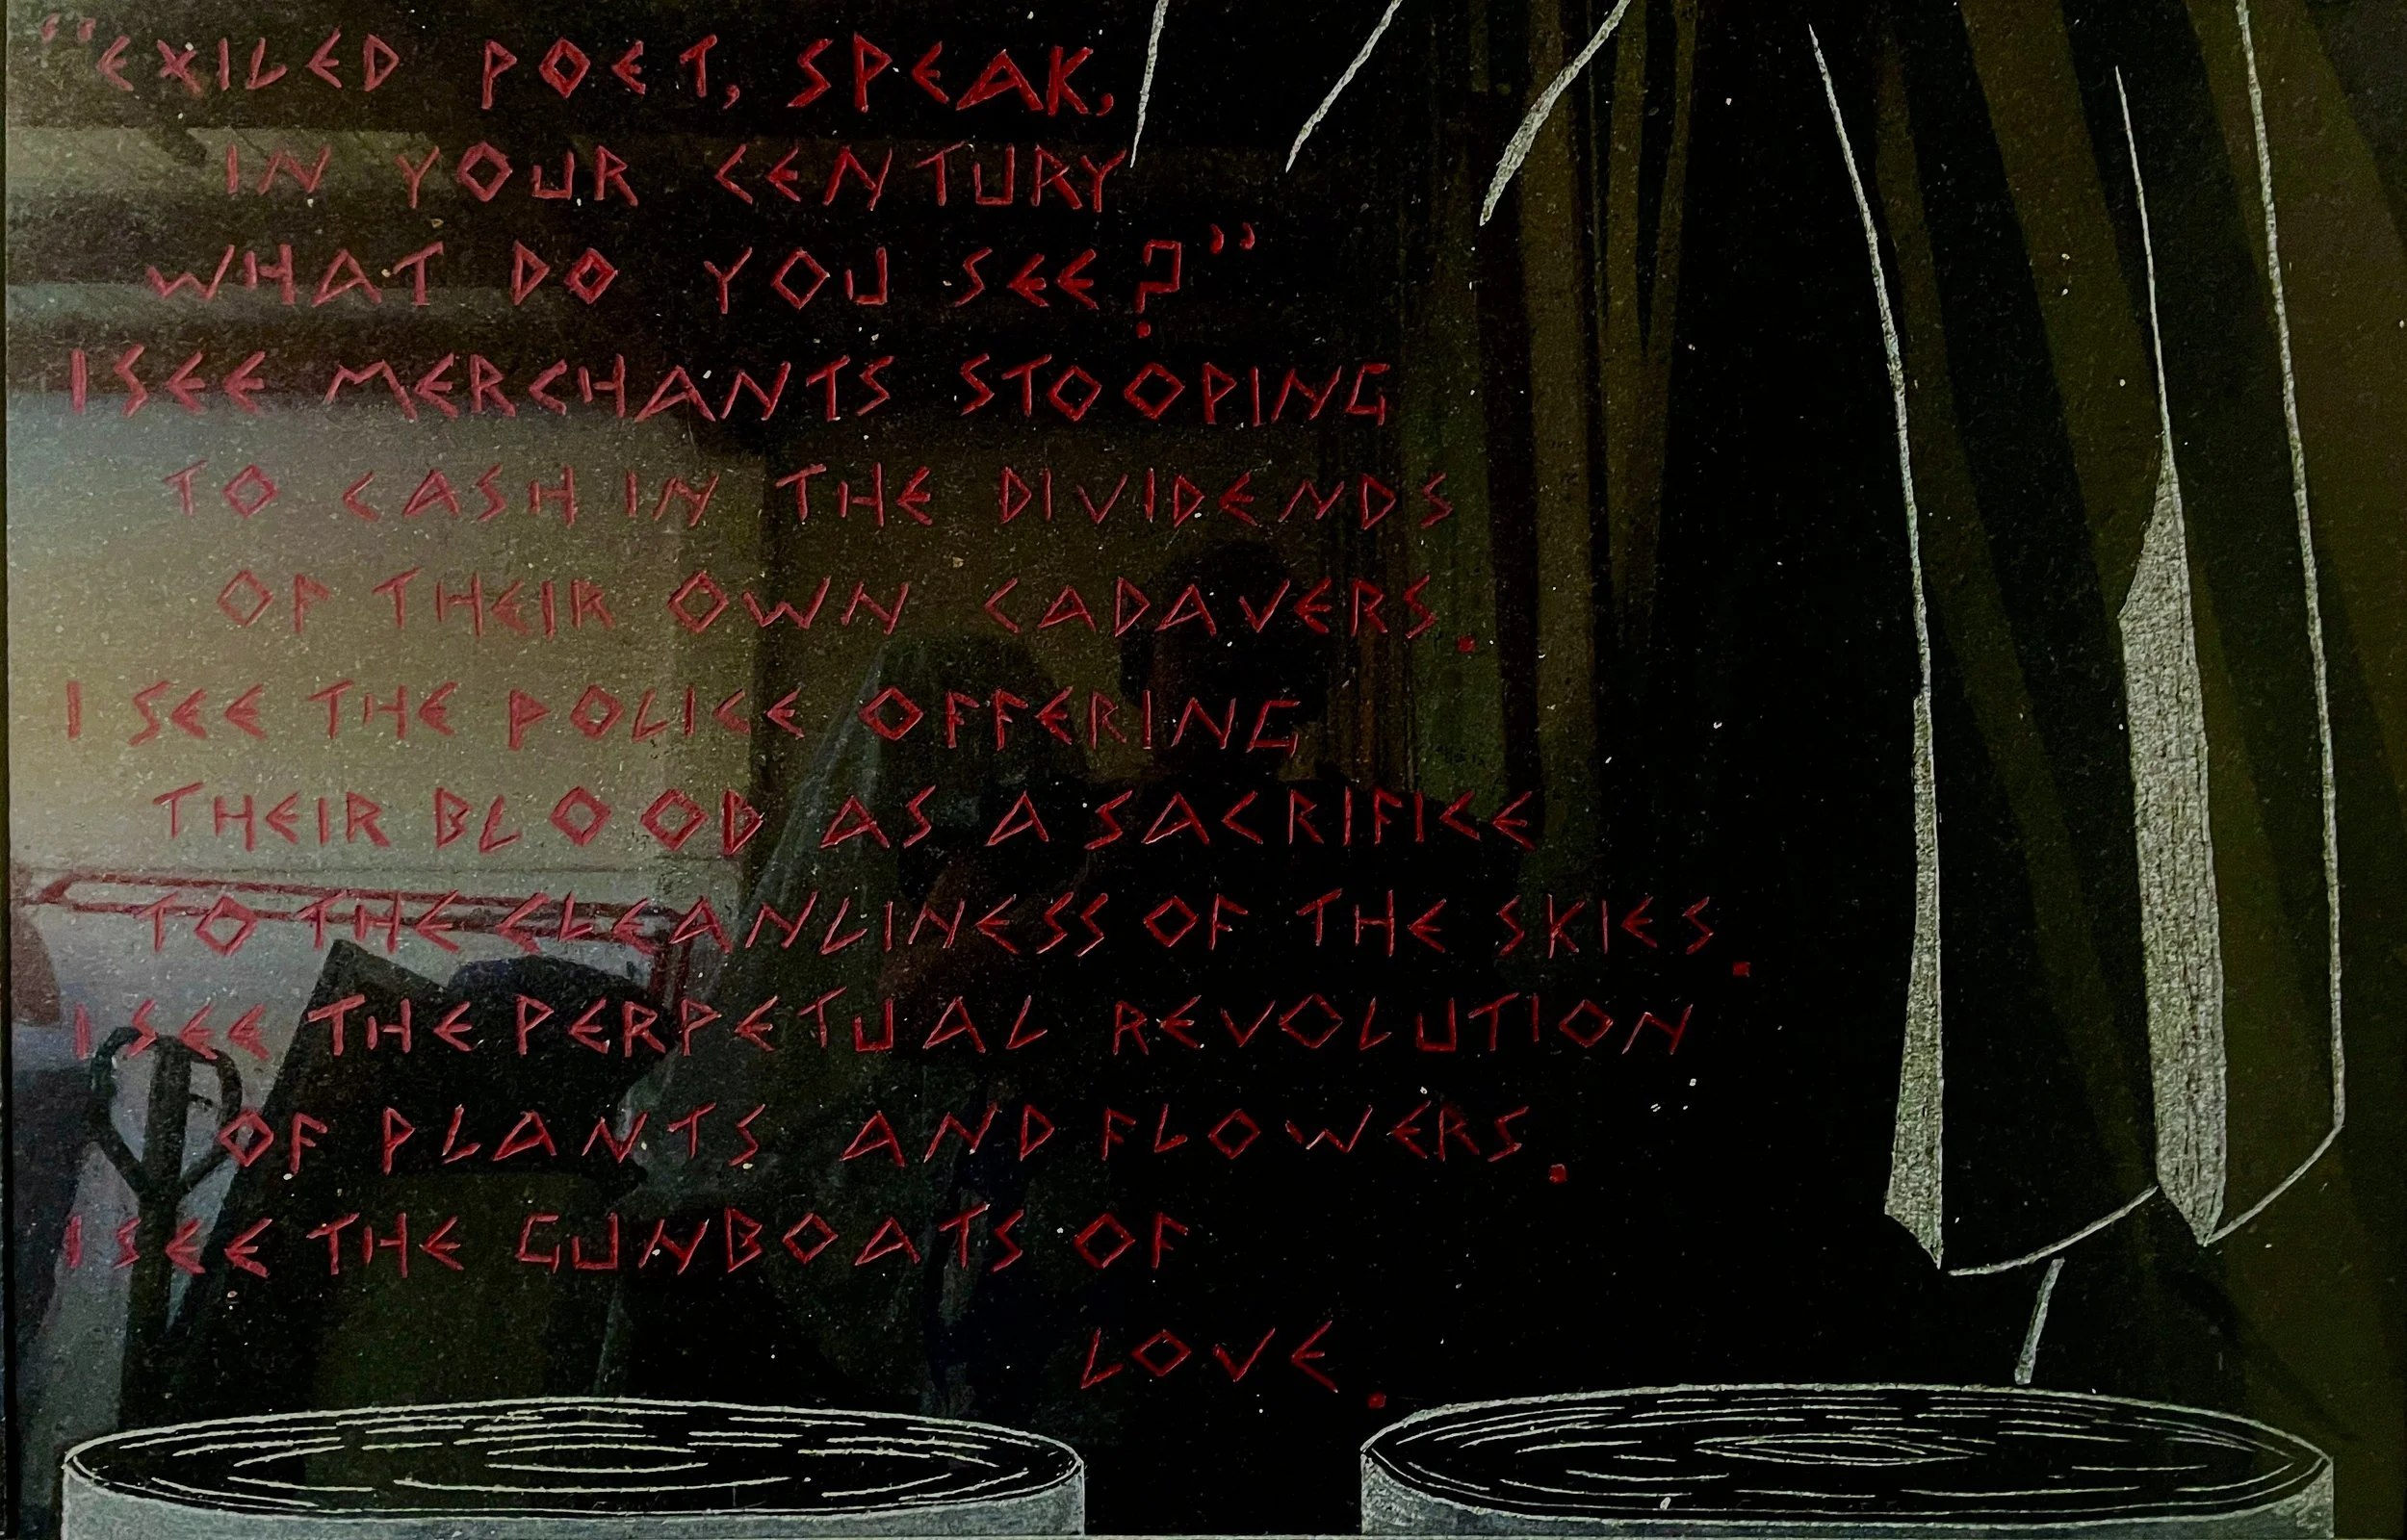 "EXILED POET, SPEAK,
IN YOUR CENTURY
WHAT DO YOU SEE?"
I SEE MERCHANTS STOOPING
TO CASH IN THE DIVIDENDS
OF THEIR OWN CADAVERS.
I SEE THE POLICE OFFERING
THEIR BLOOD AS A SACRIFICE
TO THE CLEANLINESS OF THE SKIES.
I SEE THE PERPETUAL REVOLUTION
OF PLANTS AND FLOWERS.
I SEE THE GUNBOATS OF
LOVE.